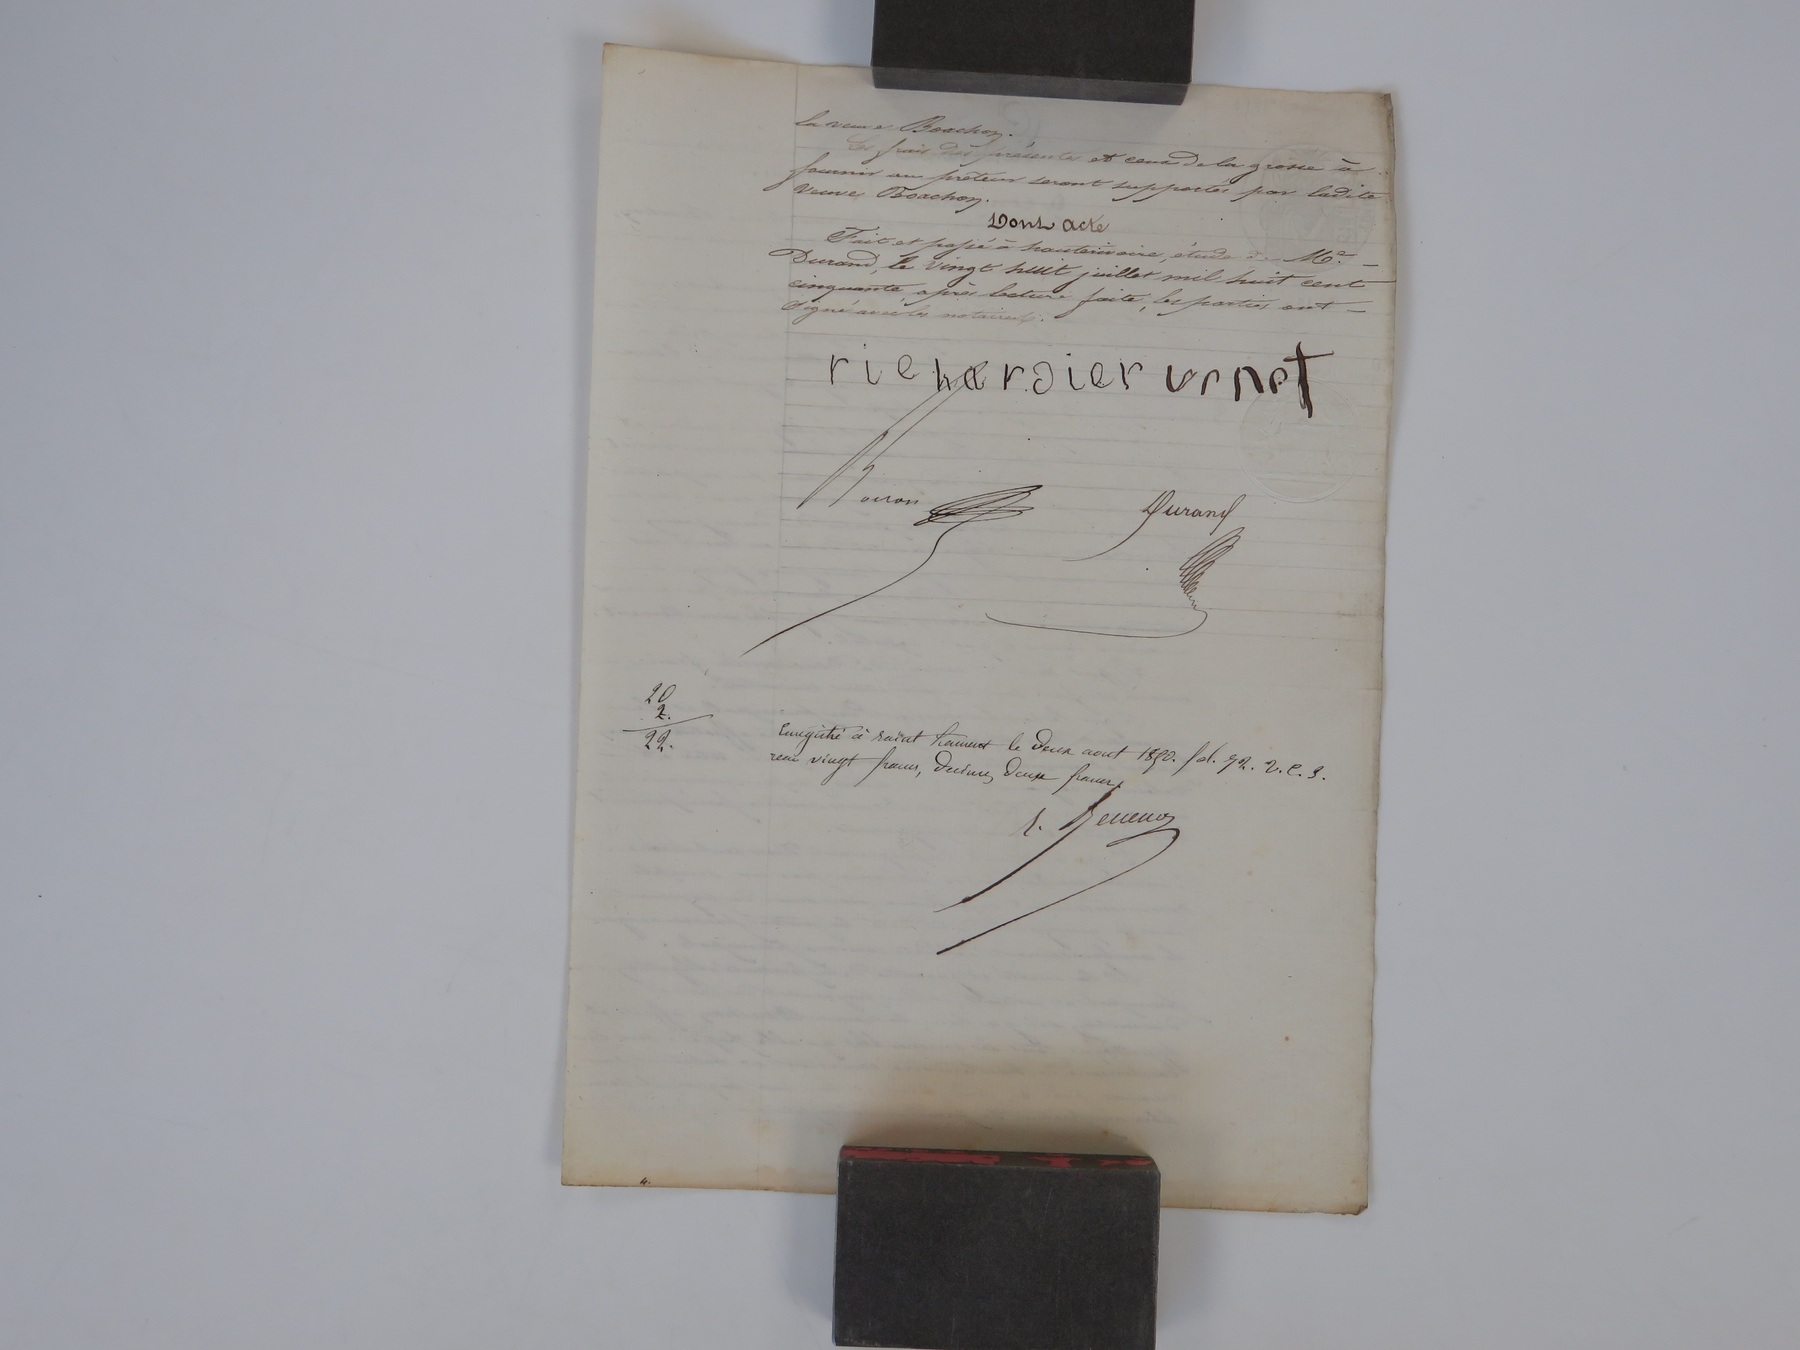 la veuve Boachon.
Les frais des présentes et ceux de la grosse à
fournir au prêteur seront supportés par ladite
veuve Boachon.
Dont acte
Fait et passé à hauterivoire, étude de Me
Durand, le vingt huit juillet mil huit cent
cinquante, après lecture faite, les parties ont
signé avec les notaires.
Durand
20
2.
22.
Enregistré à saint le deux aout 1850. fol. 92. v. c. 3.
reçu vingt francs, decimes deux francs.